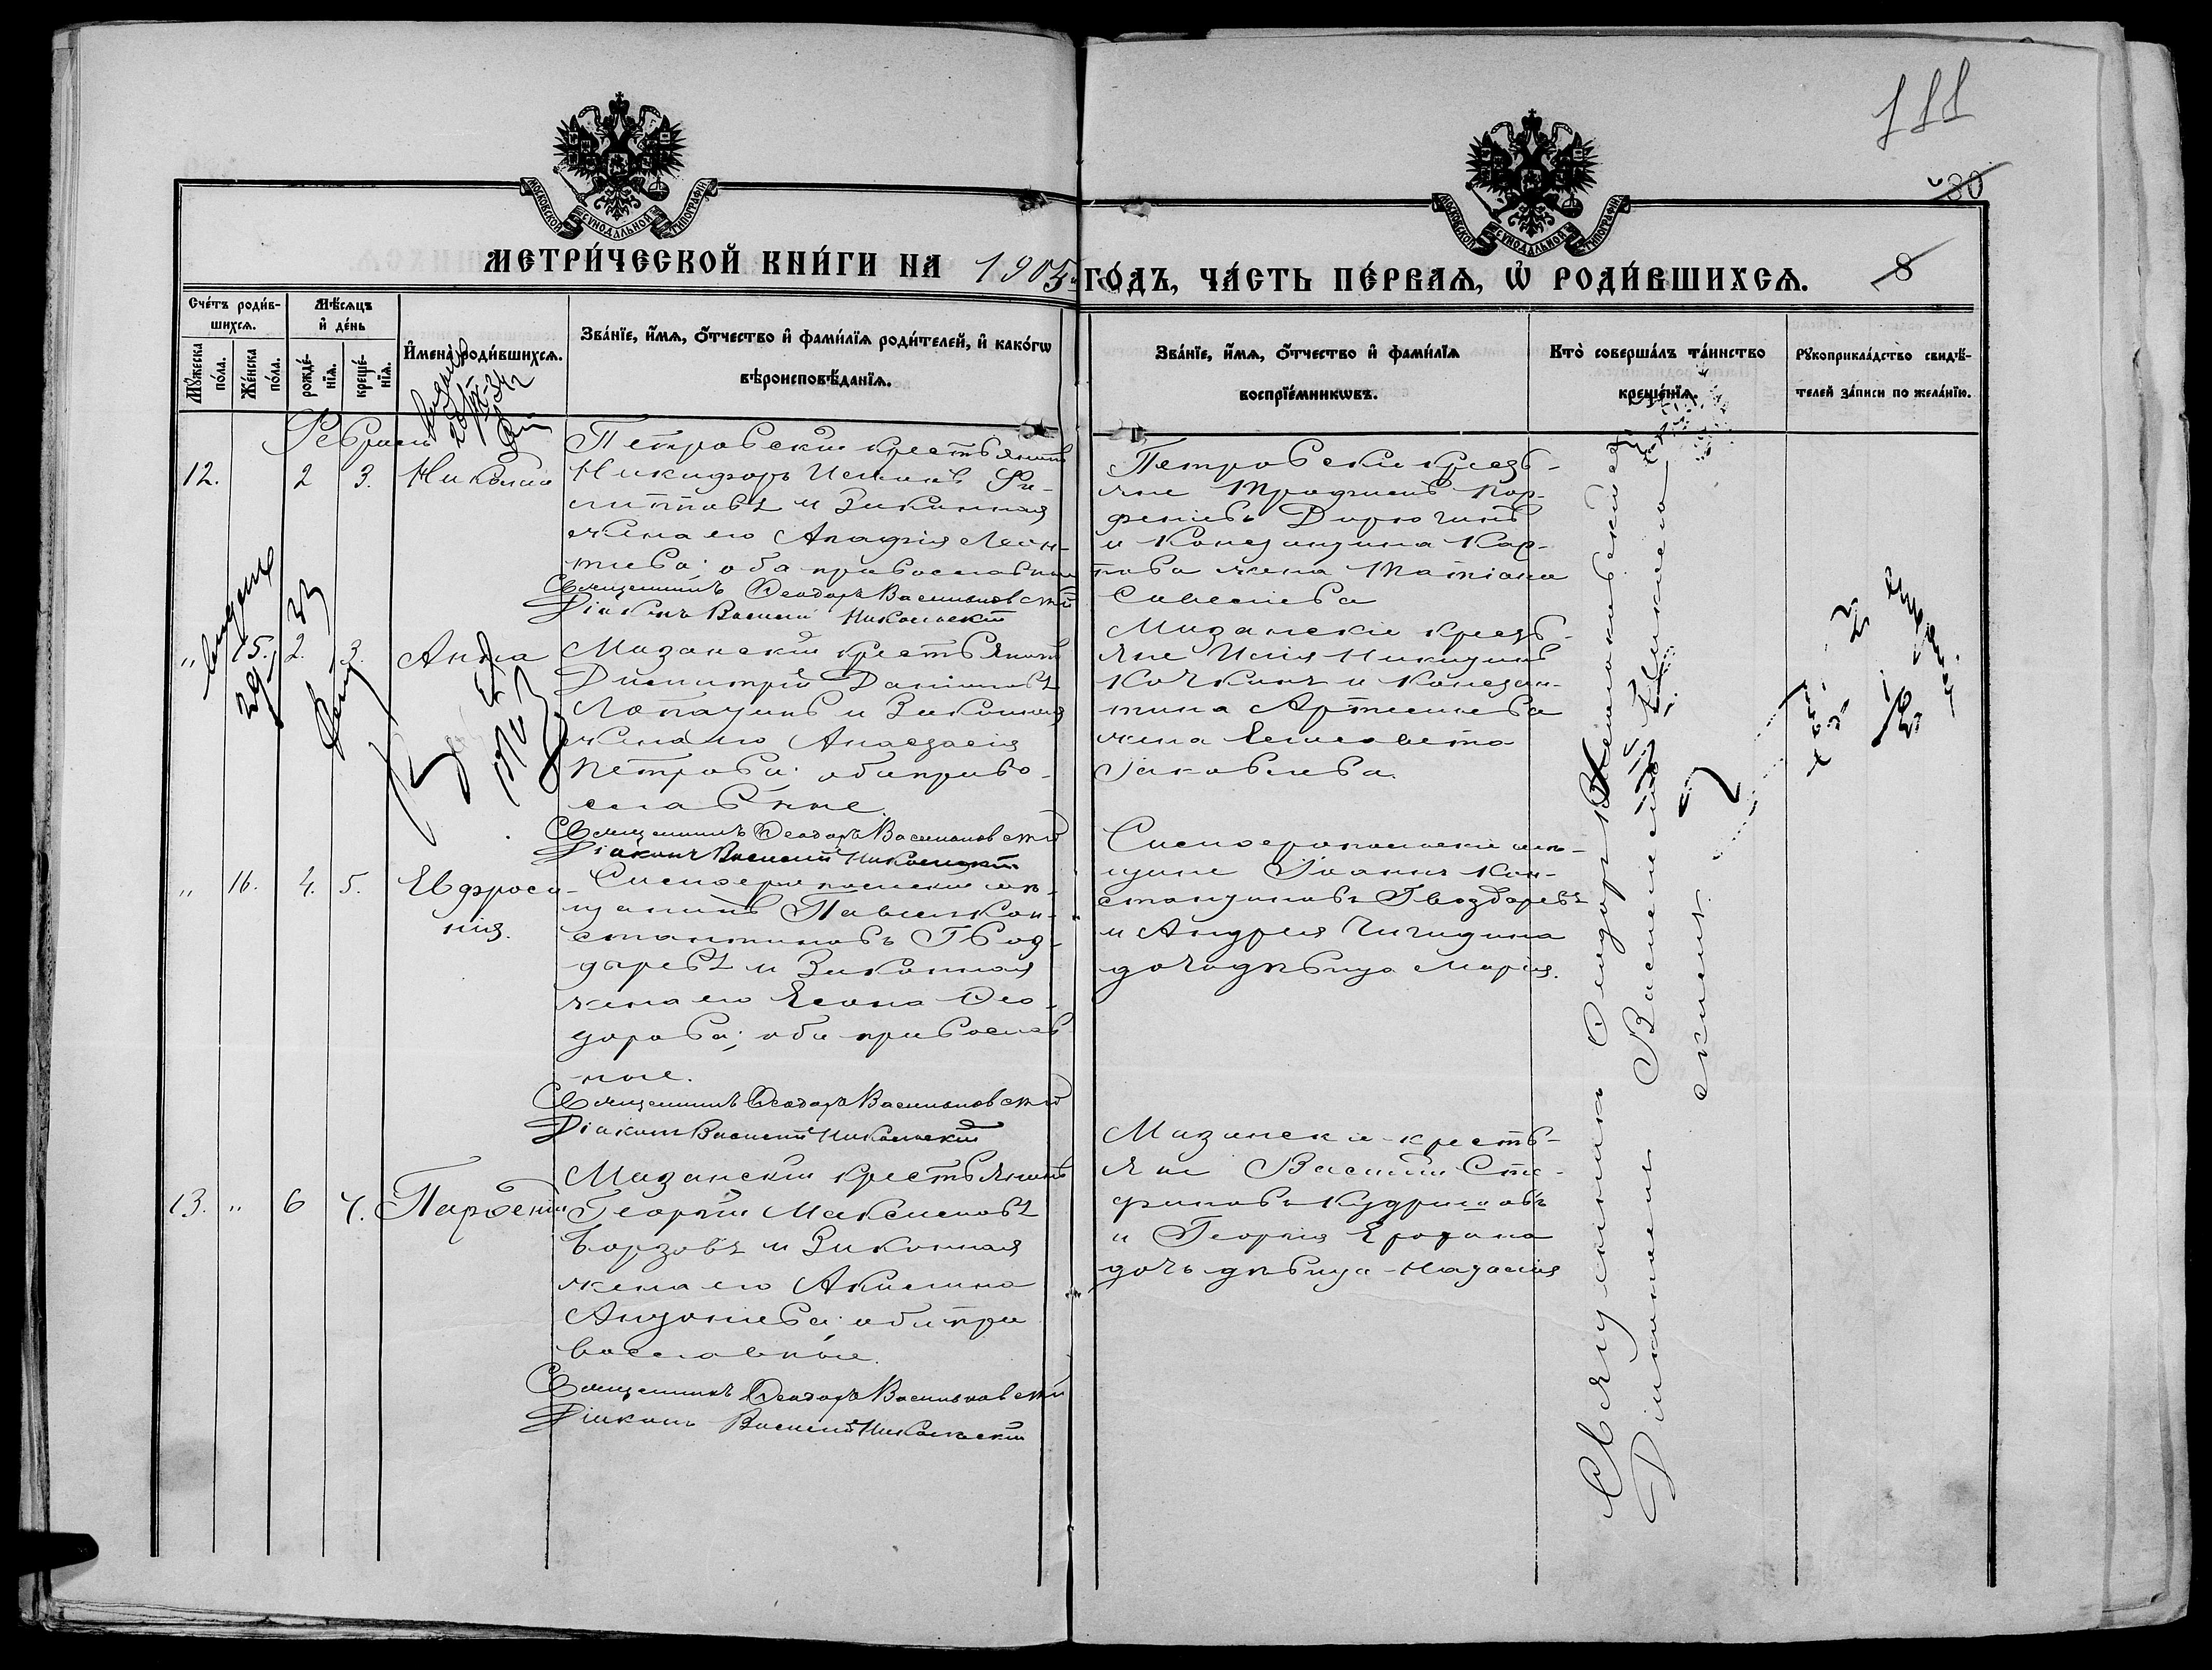 111
80
8
МОСКОВСКОЙ СѴНОДАЛЬНОЙ ТИПОГРАФІИ.
МОСКОВСКОЙ СѴНОДАЛЬНОЙ ТИПОГРАФІИ.
МЕТРИ́ЧЕСКОЙ КНИ́ГИ НА 1905й ГО́ДЪ, ЧА́СТЬ ПЕ́РВАѦ, Ѡ҆ РОДИ́ВШИХСѦ.
Сче́тъ роди́в-
шихсѧ.
Мѣ́сѧцъ
и҆ де́нь
Мꙋ́жеска
по́ла.
Же́нска
по́ла.
рожде́-
нїѧ.
креще́-
нїѧ.
И҆мена̀ роди́вшихсѧ.
Зва́нїе, и҆́мѧ, ѻ҆́тчество и҆ фами́лїѧ роди́телей, и҆ како́гѡ
вѣроисповѣ́данїѧ.
Зва́нїе, и҆́мѧ, ѻ҆́тчество и҆ фами́лїѧ
воспрїе́мникѡвъ.
Кто̀ соверша́лъ та́инство
креще́нїѧ.
Рꙋкоприкла́дство свидѣ́-
телей за́писи по жела́нїю.
Февраль
12. 2 3. Николай
Петровскій крестьянинъ
Никифоръ
и законная
жена его Агафія Леон-
тіева; оба православные
Священникъ Ѳеодоръ Васильковскій
Діаконъ Василій Никольскій
Петровскіе кресть-
яне Трофимъ Пар-
феніевъ
и Константина Кар-
пова жена Татіана
Савеліева
" 15. 2. 3. Анна
Мазанскій крестьянинъ
Димитрій Даніиловъ
Лопатинъ и законная
жена его Анастасія
Петрова; оба право-
славные.
Священникъ Ѳеодоръ Васильковскій
Діаконъ Василій Никольскій
Мазанскіе кресть-
яне Илія Никитинъ
Кочкинъ и Констан-
тина Артемьева
жена Елисавета
Іаковлева.
" 16. 4. 5. Евфроси-
нія.
Симферопольскій мѣ-
щанинъ Павелъ Кон-
стантиновъ Гвоз-
дыревъ и законная
жена его Елена Ѳео-
дорова; оба православ-
ные.
Священникъ Ѳеодоръ Васильковскій
Діаконъ Василій Никольскій
Симферопольскіе мѣ-
щане Іоаннъ Кон-
стантиновъ Гвоздаревъ
и Андрея Чигидина
дочь дѣвица Марія.
13. " 6 7. Парѳеній
Мазанскій крестьянинъ
Георгій Максимовъ
Борзовъ и законная
жена его Акилина
Антоніева; оба пра
вославные.
Священникъ Ѳеодоръ Васильковскій
Діаконъ Василій Никольскій
Мазанскіе кресть-
яне Василій Сте-
фановъ Кудряшовъ
и Георгія Ерохина
дочь дѣвица Наталія
Священникъ Ѳеодоръ Васильковскій
Діакономъ Василіемъ Николь-
скимъ.